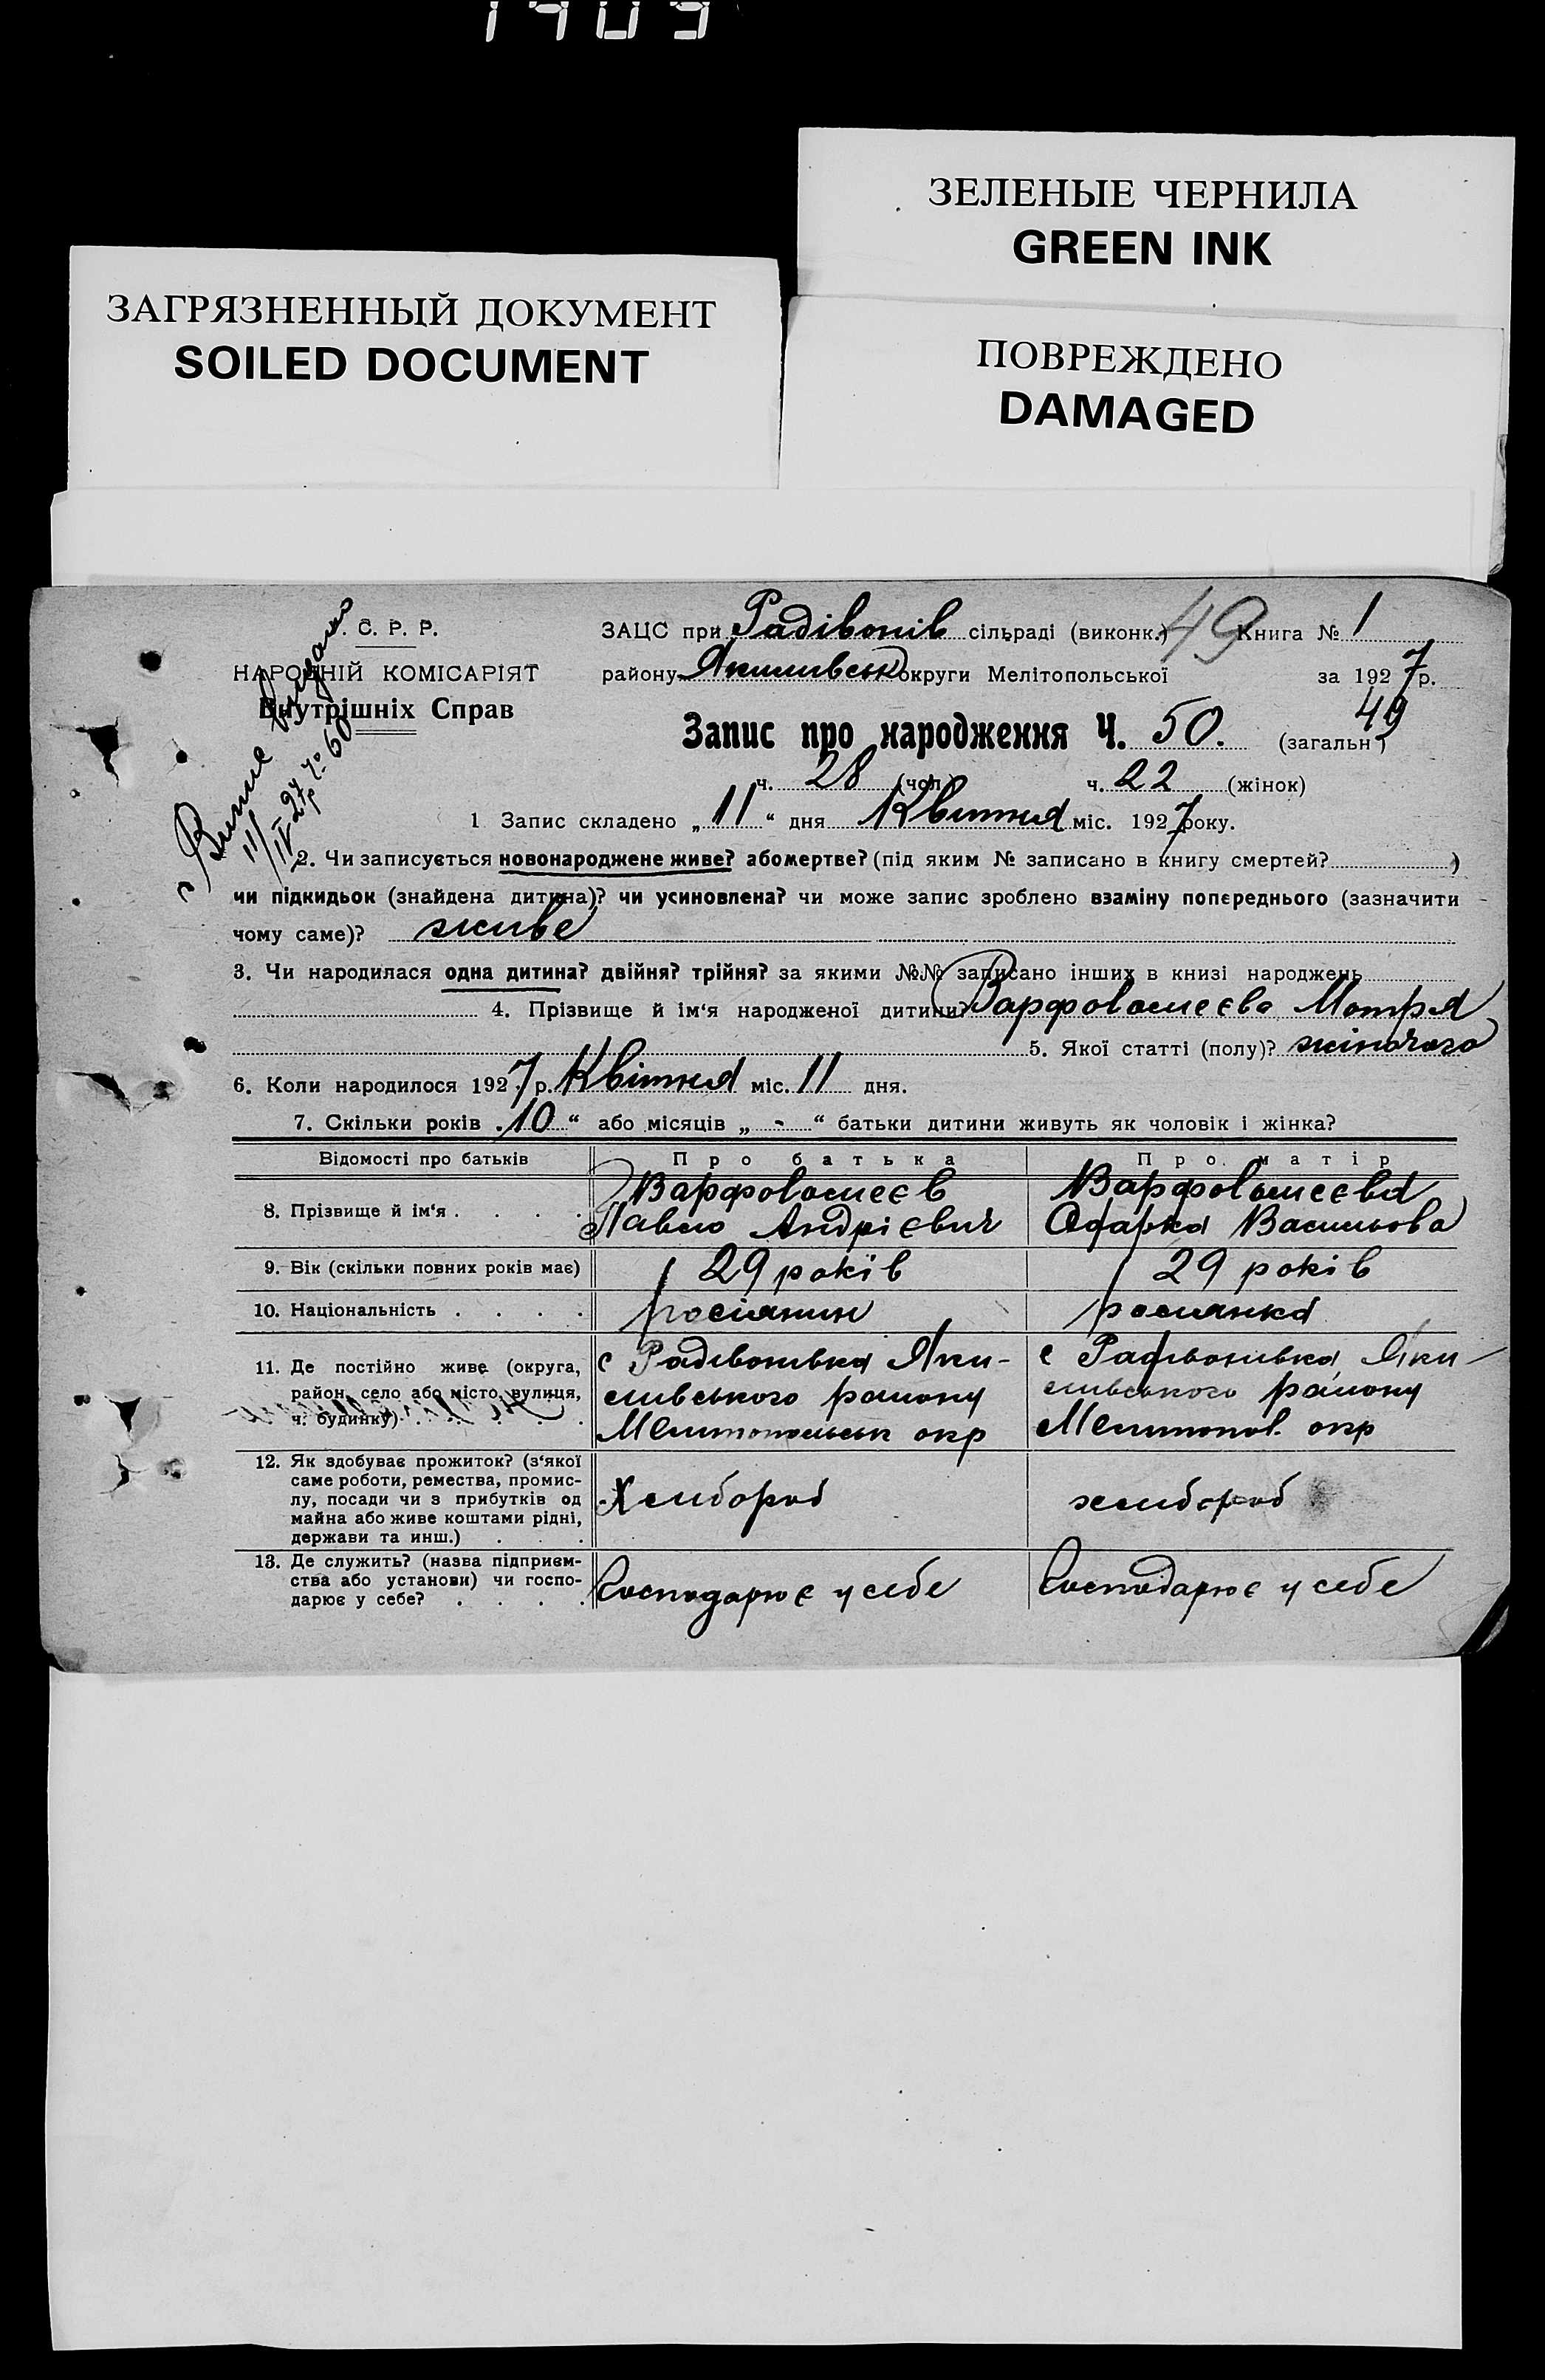 1909
ЗЕЛЕНЫЕ ЧЕРНИЛА
GREEN INK
ЗАГРЯЗНЕННЫЙ ДОКУМЕНТ
SOILED DOCUMENT
ПОВРЕЖДЕНО
DAMAGED
. С. Р. Р.
НАРОДНІЙ КОМІСАРІЯТ
Внутрішніх Справ
Випис видано
11/IV 27 р № 60
ЗАЦС при Радівонів сільраді (виконк.) 49 Книга № 1
району Якимівськ округи Мелітопольської за 1927 р.
49
Запис про народження Ч. 50. (загальн)
ч. 28 (чол) ч. 22 (жінок)
1 Запис складено „11“ дня Квитня міс. 1927 року.
2. Чи записується новонароджене живе? або мертве? (під яким № записано в книгу смертей? )
чи підкидьок (знайдена дитина)? чи усиновлена? чи може запис зроблено взаміну попереднього (зазначити
чому саме)? живе
3. Чи народилася одна дитина? двійня? трійня? за якими №№ записано інших в книзі народжень
4. Прізвище й ім‘я народженої дитини? Варфоломеєва Мотря
5. Якої статті (полу)? жіночого
6. Коли народилося 1927 р. Квітня міс. 11 дня.
7. Скільки років „10“ або місяців „ - “ батьки дитини живуть як чоловік і жінка?
Відомості про батьків Про батька Про матір
8. Прізвище й ім‘я . . . . Варфоломеєв Варфоломеєва
Павло Андрієвич Одарка Васильова
9. Вік (скільки повних років має) 29 років 29 років
10. Національність . . . . росіянин росиянка
11. Де постійно живе (округа, с Радівонивка Яки- с Радьвонивка Яки-
район, село або місто, вулиця, мивського району мивського району
ч. будинку) . . . . Мелитопольськ окр Мелитопол. окр
12. Як здобуває прожиток? (з‘якої
саме роботи, ремества, промис-
лу, посади чи з прибутків од Хлибороб хлибороб
майна або живе коштами рідні,
держави та инш.) . . .
13. Де служить? (назва підприєм-
ства або установи) чи госпо- Господарює у себе Господарює у себе
дарює у себе? . . . .